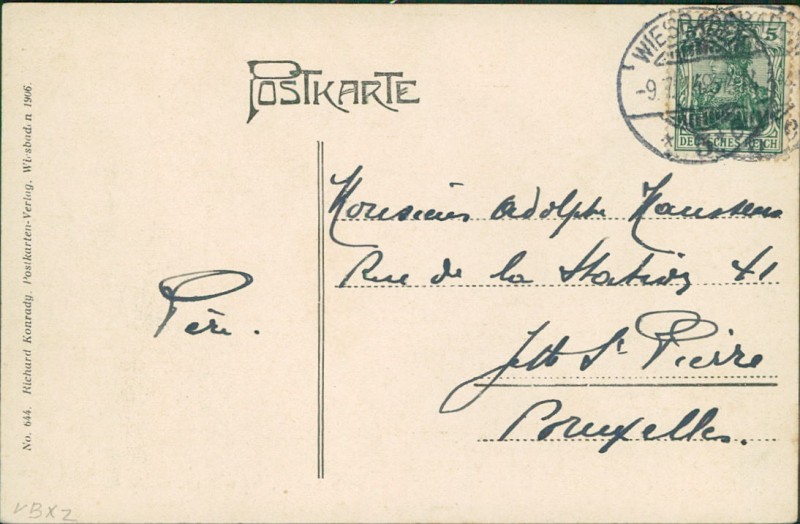 POSTKARTE
WIESBADEN
-9.
5
DEUTSCHES REICH
Monsieur Adolphe Hanssens
Rue de la Station 41
Jette St Pierre
Bruxelles.
Père.
No. 644. Richard Konrady, Postkarten-Verlag, Wiesbaden 1906.
VBXZ